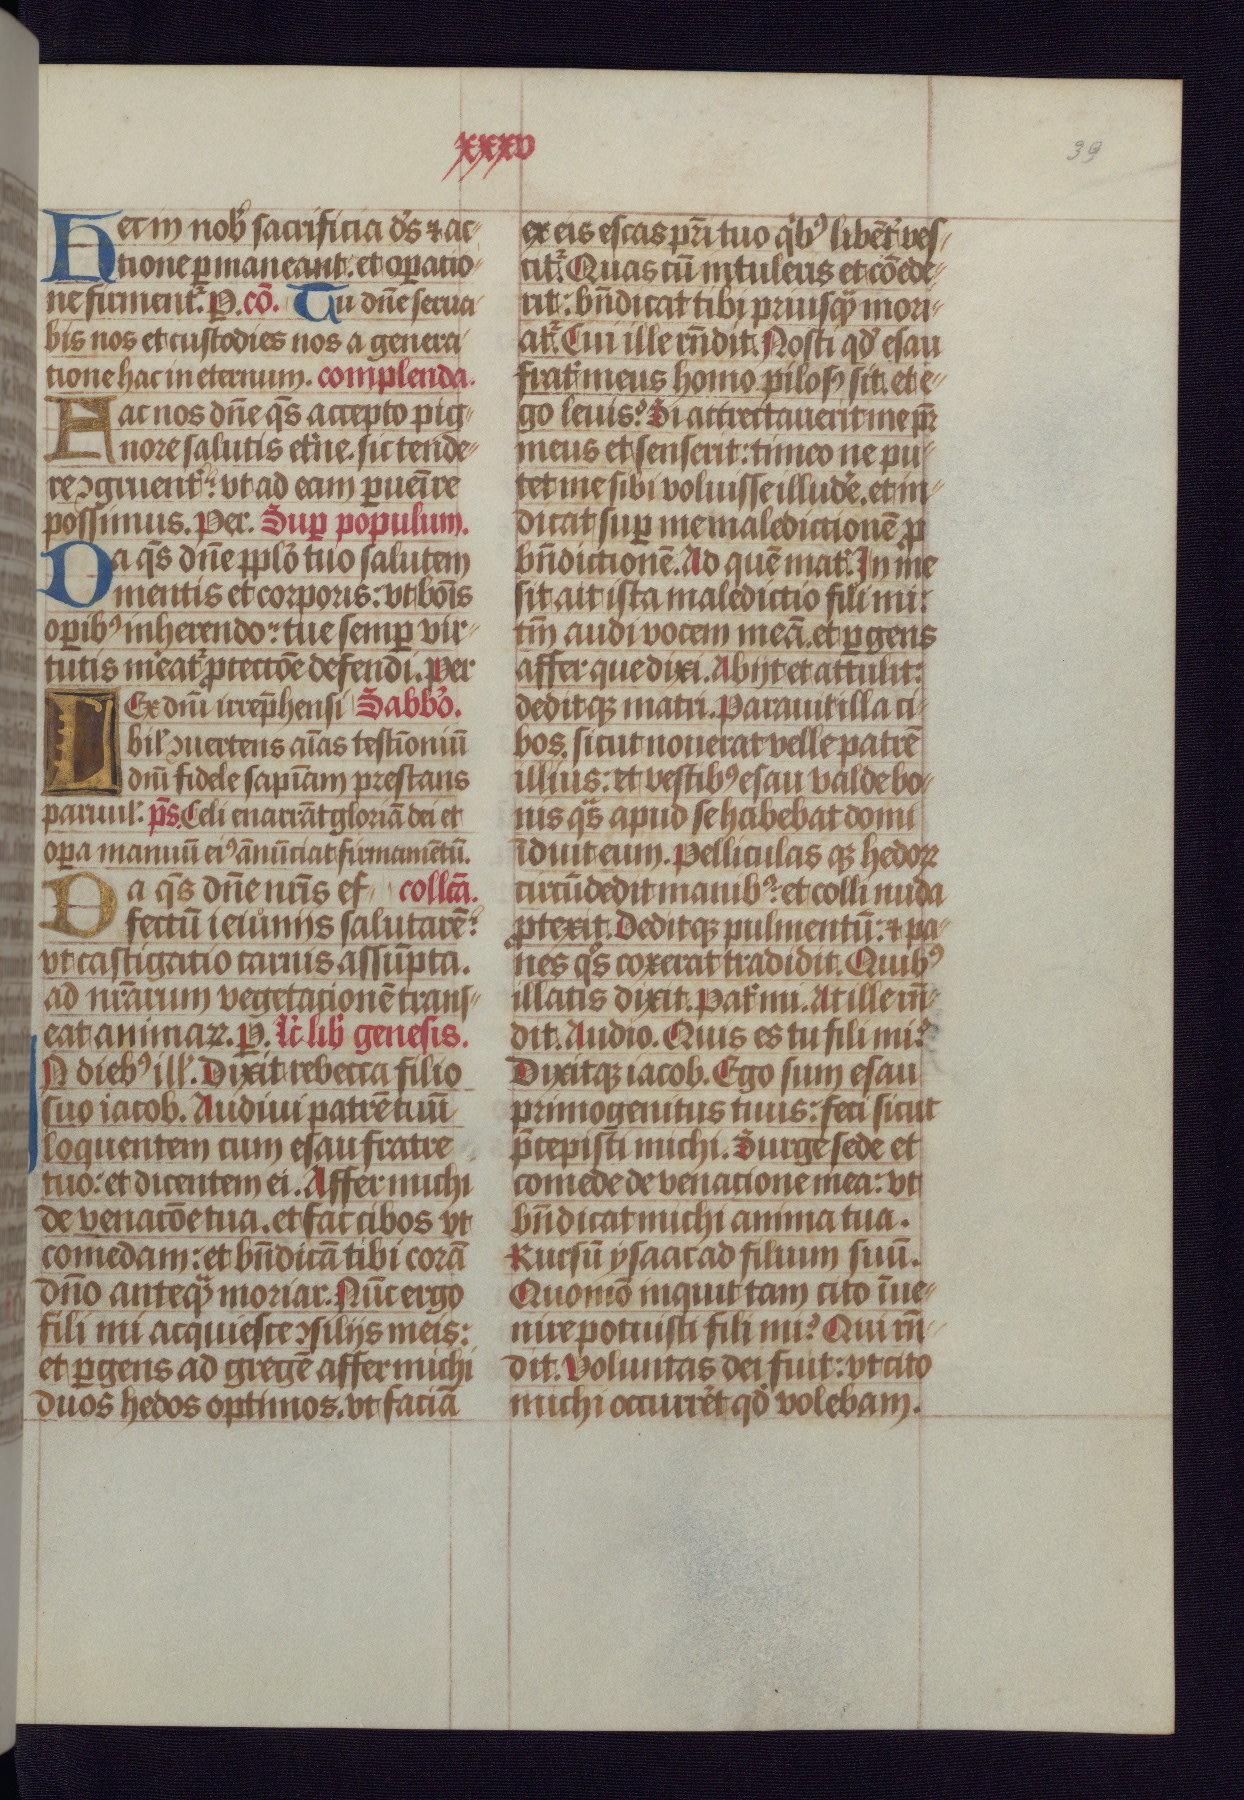 xxxv
39
Hec in nob᷒ sacrificia dꝰs ⁊ ac-
tione ꝑmaneant. et oꝑatio-
ne firment᷑. P. cō. Tu dn̄e serua-
bis nos et custodies nos a genera-
tione hac in eternum. complenda.
Fac nos dn̄e qs̄ accepto pig-
nore salutis et̾ne. sic tende-
re ꝯgruent᷑: vt ad eam ꝑuenīre
possimus. Per. Suꝑ populum.
Da qs̄ dn̄e pplō tuo salutem
mentis et corporis: vt bonīs
oꝑibꝰ inherendo: tue semꝑ vir-
tutis m̾eat᷑ ꝓtectōe defendi. Per
Lex dnī irrep̄hensi Sabbō.
bil᷒ ꝯuertens aīas testīoniū
dnī fidele sapīam prestans
paruul᷒. ps̄. Celi enarrāt gloriā dei et
oꝑa manuū eiꝰ ānūciat firmamētū.
Da qs̄ dn̄e nr̄is ef- collēa.
fectū ieiunijs salutarē:
vt castigatio carnis assūpta.
ad nr̄arum vegetacionē trans-
eat animaꝝ. P. Lc̄ lib᷒ genesis.
In diebꝰ ill᷒. Dixit rebecca filio
suo iacob. Audiui patrē tuū
loquentem cum esau fratre
tuo: et dicentem ei. Affer michi
de venacōe tua. et fac cibos vt
comedam: et bn̄dicā tibi corā
dn̄o anteqᷓ moriar. Nūc ergo
fili mi acquiesce ꝯsilijs meis:
et ꝑgens ad gregē affer michi
duos hedos optimos. vt faciā
ex eis escas pr̄i tuo qͥbꝰ libēt̾ ves-
cit᷑. Quas cū intuleris et cōede-
rit: bn̄dicat tibi priusqᷓ mori-
at᷑. Cui ille rn̄dit. Nosti qd̾ esau
frat̾ meus homo pilosꝰ sit. et e-
go leuis: Si attrectauerit me pr̄
meus et senserit: timeo ne pu-
tet me sibi voluisse illud̾e. et in-
dicat suꝑ me maledictionē ꝓ
bn̄dictionē. Ad quē mat̾. In me
sit ait ista maledictio fili mi:
tm̄ audi vocem meā. et ꝑgens
affer que dixi. Abijt et attulit:
deditqꝫ matri. Parauit illa ci-
bos. sicut nouerat velle patrē
illius: et vestibꝰ esau valde bo-
nis qᷓs apud se habebat domi
īduit eum. Pelliculas qꝫ hedoꝝ
circūdedit manibꝰ: et colli nuda
ꝓtexit. Deditqꝫ pulmentū: ⁊ pa-
nes qͦs coxerat tradidit. Quibꝰ
illatis dixit. Pat̾ mi. At ille rn̄-
dit. Audio. Quis es tu fili mi?
Dixitqꝫ iacob. Ego sum esau
primogenitus tuus: feci sicut
p̄cepisti michi. Surge sede et
comede de venacione mea: vt
bn̄dicat michi anima tua.
Rursū ysaac ad filium suū.
Quomō inquit tam cito īue-
nire potuisti fili mi? Qui rn̄-
dit. Voluntas dei fuit: vt cito
michi occurr̾et qd̾ volebam.